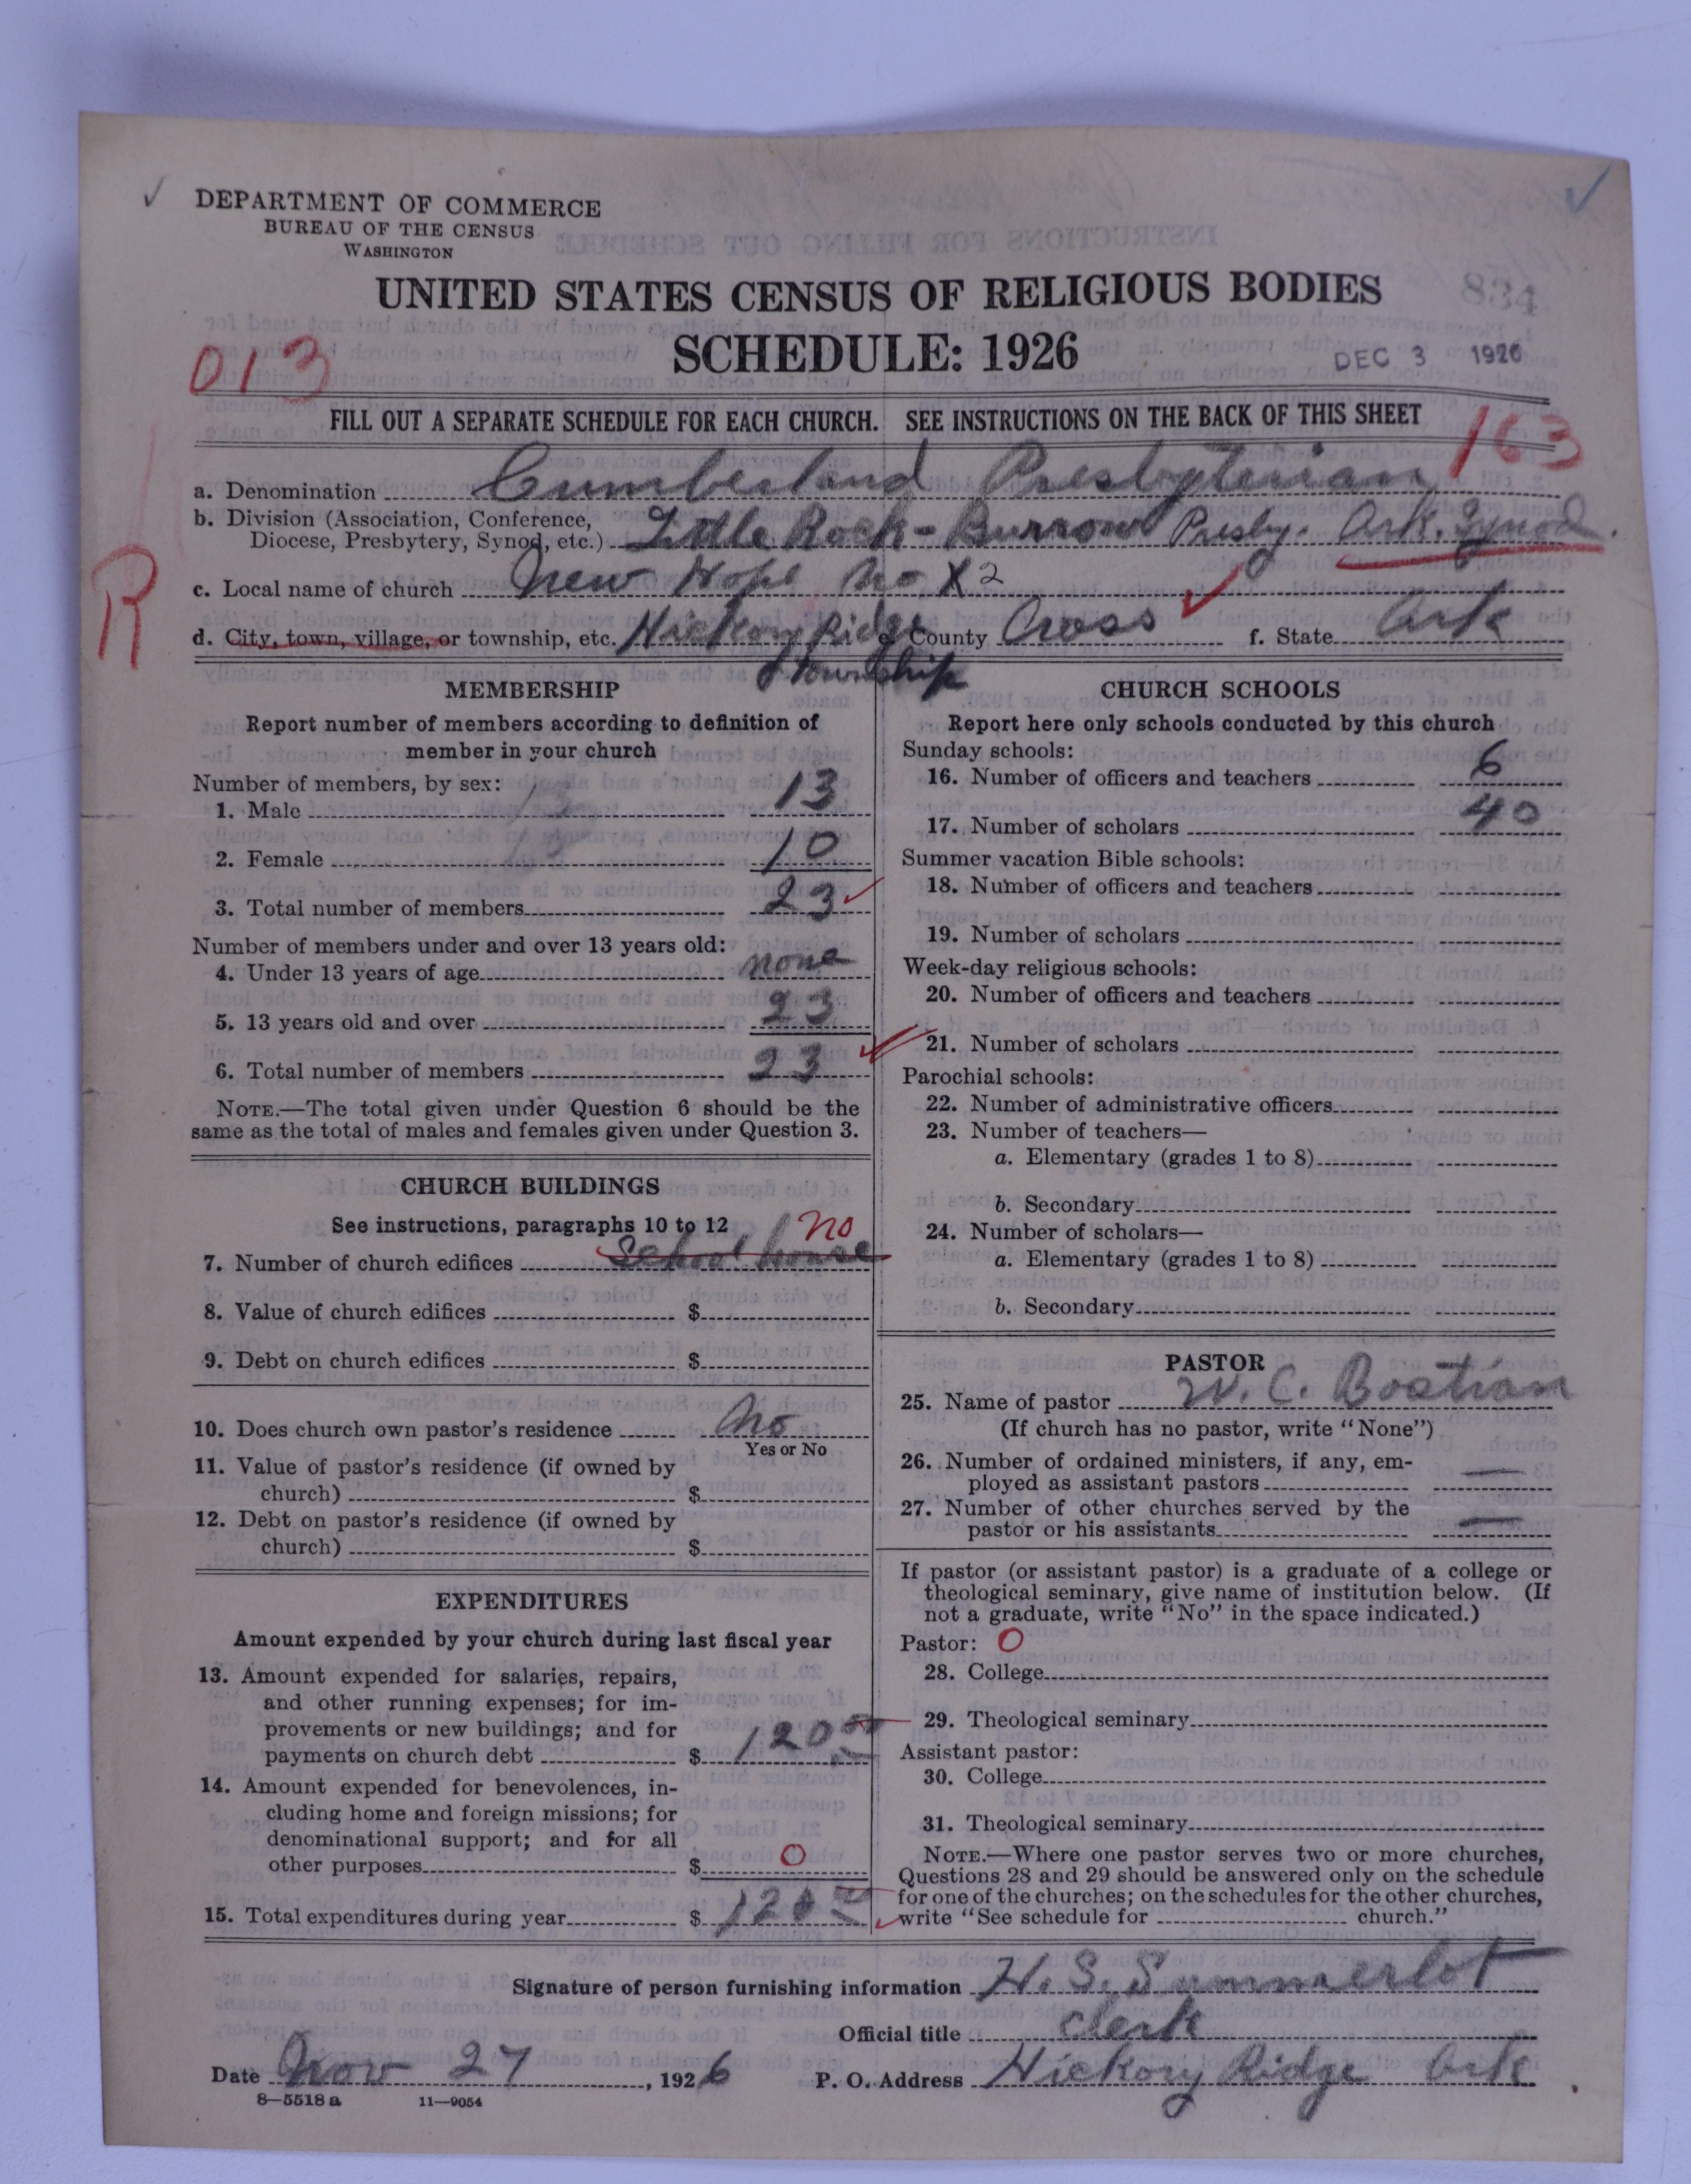 DEPARTMENT OF COMMERCE
BUREAU OF THE CENSUS
WASHINGTON
UNITED STATES CENSUS OF RELIGIOUS BODIES
SCHEDULE: 1926
834
DEC 3 1926
013
FILL OUT A SEPARATE SCHEDULE FOR EACH CHURCH. SEE INSTRUCTIONS ON THE BACK OF THIS SHEET
163
a. Denomination Cumberland Presbyterian
b. Division (Association, Conference, Diocese, Presbytery, Synod, etc.) Little Rock-Burrow Presby. Ark. Synod
R
c. Local name of church New Hope No X2
d. City, town, village, or township, etc. Hickory Ridge e. County Cross f. State Ark
township
MEMBERSHIP
Report number of members according to definition of
member in your church
Number of members, by sex:
1. Male 13
2. Female 10
3. Total number of members 23
Number of members under and over 13 years old:
4. Under 13 years of age none
5. 13 years old and over 23
6. Total number of members 23
NOTE.—The total given under Question 6 should be the
same as the total of males and females given under Question 3.
CHURCH BUILDINGS
See instructions, paragraphs 10 to 12
no
7. Number of church edifices School house
8. Value of church edifices $
9. Debt on church edifices $
10. Does church own pastor's residence No
Yes or No
11. Value of pastor's residence (if owned by
church) $
12. Debt on pastor's residence (if owned by
church) $
EXPENDITURES
Amount expended by your church during last fiscal year
13. Amount expended for salaries, repairs,
and other running expenses; for im-
provements or new buildings; and for
payments on church debt $ 120 00
14. Amount expended for benevolences, in-
cluding home and foreign missions; for
denominational support; and for all
other purposes $ 0
15. Total expenditures during year $ 120 00
CHURCH SCHOOLS
Report here only schools conducted by this church
Sunday schools:
16. Number of officers and teachers 6
17. Number of scholars 40
Summer vacation Bible schools:
18. Number of officers and teachers
19. Number of scholars
Week-day religious schools:
20. Number of officers and teachers
21. Number of scholars
Parochial schools:
22. Number of administrative officers
23. Number of teachers—
a. Elementary (grades 1 to 8)
b. Secondary
24. Number of scholars—
a. Elementary (grades 1 to 8)
b. Secondary
PASTOR
25. Name of pastor W. C. Bostian
(If church has no pastor, write "None")
26. Number of ordained ministers, if any, em-
ployed as assistant pastors —
27. Number of other churches served by the
pastor or his assistants —
If pastor (or assistant pastor) is a graduate of a college or
theological seminary, give name of institution below. (If
not a graduate, write "No" in the space indicated.)
Pastor: O
28. College
29. Theological seminary
Assistant pastor:
30. College
31. Theological seminary
NOTE.—Where one pastor serves two or more churches,
Questions 28 and 29 should be answered only on the schedule
for one of the churches; on the schedules for the other churches,
write "See schedule for church."
Signature of person furnishing information H. S. Summerlot
Official title Clerk
Date Nov 27, 1926 P. O. Address Hickory Ridge Ark
8—5518 a 11—9054